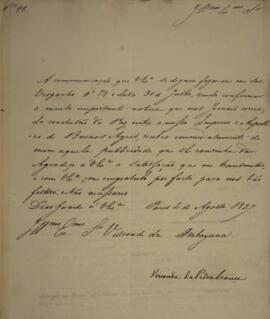 Nº 98.
Illmo. e Exmo. Sr.
A communicação que V.Exa. se dignou fazer-me em seu
Despacho Nº 78 e data 30 de Julho, vindo confirmar
a muito importante noticia que nos Jornaes correo,
da conclusão da Paz entre o nosso Imperio e a Republi-
ca de Buenos Ayres, recebeo immediatamente de
mim aquella publicidade que lhe convinha dar.
Agradeço a V.Exa. a satisfação que me transmittio,
e com V.Exa. me congratulo por facto para nós tão
feliz. Não
Deos Guarde a V.Exa. Paris 2 de Agosto 1827.
Illmo. Exmo. Sr. Visconde de Itabayana
Visconde da Pedra Branca